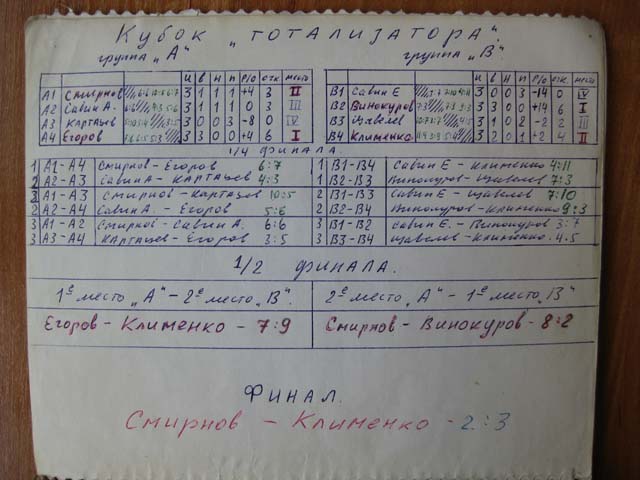 Кубок „ТОТАЛИЗАТОРА".
группа „А" группа „В"
и в н п р/о очк. место и в н п р/о очк. место
А1 Смирнов 3 1 1 1 +4 3 II В1 Савин Е 3 0 0 3 -14 0 IV
А2 Савин А. 3 1 1 1 0 3 III В2 Винокуров 3 3 0 0 +14 6 I
А3 Карташев 3 0 0 3 -8 0 IV В3 3 1 0 2 -2 2 III
А4 Егоров 3 3 0 0 +4 6 I В4 Клименко 3 2 0 1 +2 4 II
1/4 ФИНАЛА.
1 А1-А4 Смирнов - Егоров 6:7 1 В1-В4 Савин Е - Клименко 4:11
2 А2-А3 Савин А - Карташев 4:3 1 В2-В3 7:3
3 А1-А3 Смирнов - Карташев 10:5 2 В1-В3 7:10
2 А2-А4 Савин А - Егоров 5:6 2 В2-В4 Винокуров - Клименко 9:3
3 А1-А2 Смирнов - Савин А. 6:6 3 В1-В2 Савин Е. - Винокуров 3:7
3 А3-А4 Карташев - Егоров 3:5 3 В3-В4 4:5
1/2 ФИНАЛА.
1ᵉ место „А" - 2ᵉ место „В". 2ᵉ место „А" - 1ᵉ место „В"
Егоров - Клименко - 7:9 Смирнов - Винокуров - 8:2
ФИНАЛ.
Смирнов - Клименко - 2:3